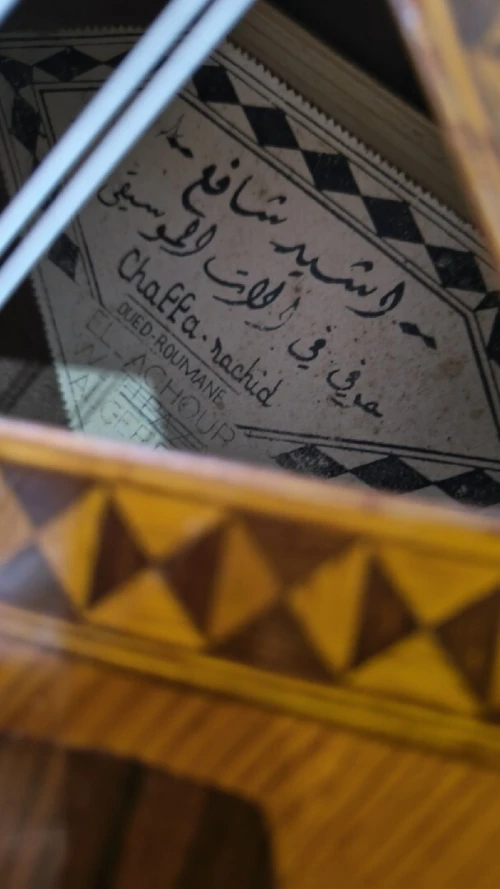 راشيد شافع
حرفي في الالات الموسيقى
Chaffa.rachid
OUED-ROUMANE
EL-ACHOUR
ALGER